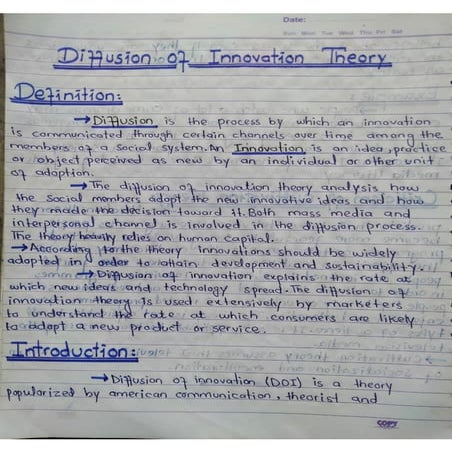 Date:
Sun Mon Tue Wed Thu Fri Sat
Diffusion of Innovation Theory
Definition:
→Diffusion is the process by which an innovation
is communicated through certain channels over time among the
members of a social system. An Innovation is an idea, practice
or object perceived as new by an individual or other unit
of adoption.
→The diffusion of innovation theory analysis how
the social members adopt the new innovative ideas and how
they made the decision toward it. Both mass media and
interpersonal channel is involved in the diffusion process.
The theory heavily relies on human capital.
→According to the theory innovations should be widely
adopted in order to attain development and sustainability.
→Diffusion of innovation explains the rate at
which new ideas and technology spread. The diffusion of
innovation theory is used extensively by marketers
to understand the rate at which consumers are likely
to adopt a new product or service.
Introduction:
→Diffusion of innovation (DOI) is a theory
popularized by american communication, theorist and
COPY